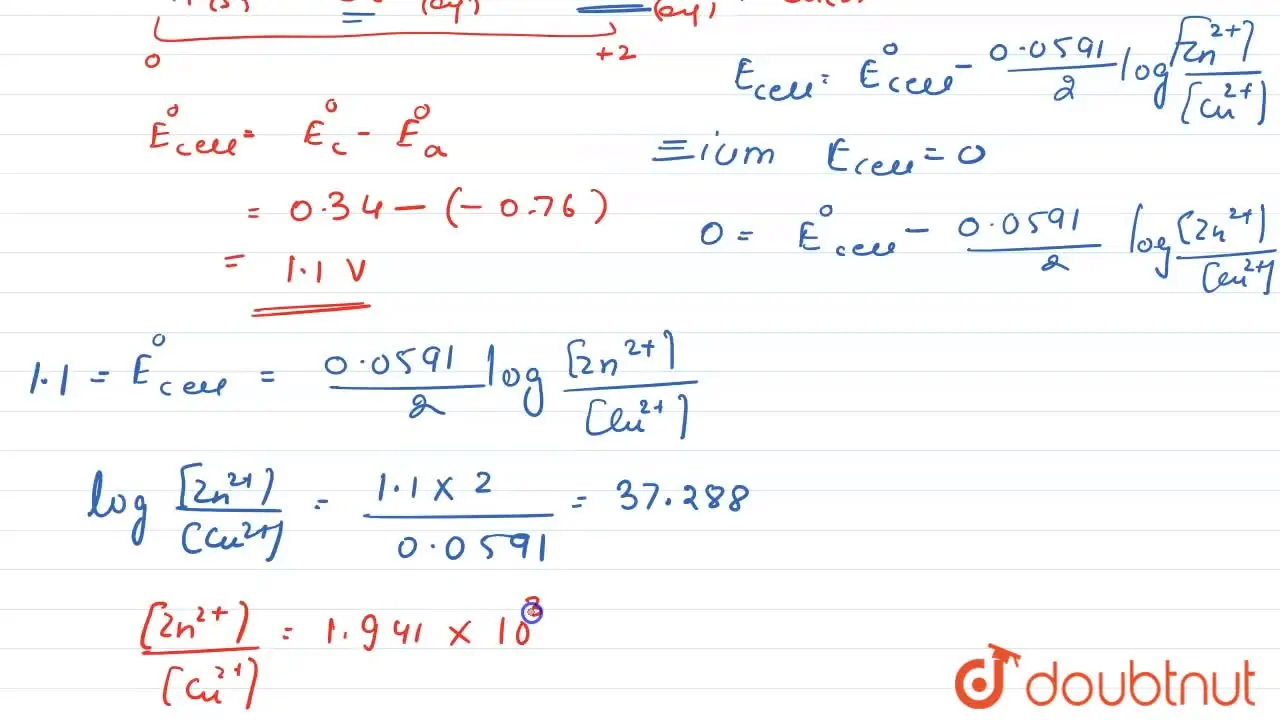 (s) (aq) (aq) +
0 +2
E⁰cell = E⁰c - E⁰a
= 0.34 - (-0.76)
= 1.1 V
Ecell = E⁰cell - 0.0591/2 log [Zn²⁺]/[Cu²⁺]
≡ium Ecell = 0
0 = E⁰cell - 0.0591/2 log [Zn²⁺]/[Cu²⁺]
1.1 = E⁰cell = 0.0591/2 log [Zn²⁺]/[Cu²⁺]
log [Zn²⁺]/[Cu²⁺] = 1.1 x 2/0.0591 = 37.288
[Zn²⁺]/[Cu²⁺] = 1.941 x 10³
doubtnut